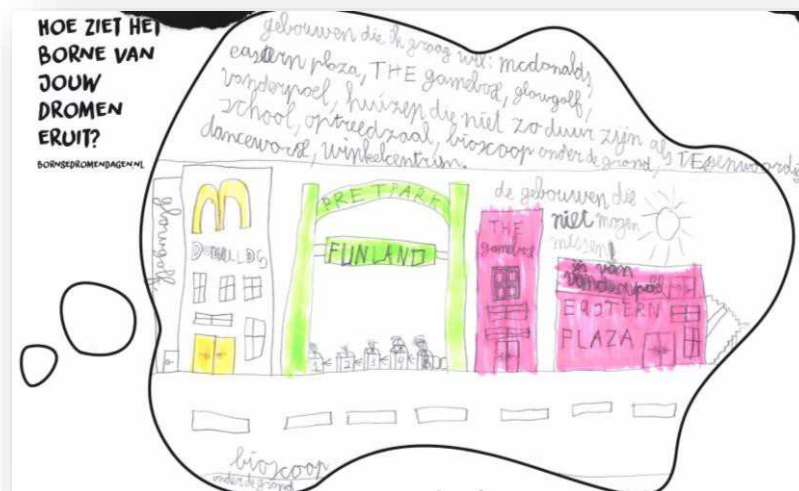 HOE ZIET HET
BORNE VAN
JOUW
DROMEN
ERUIT?
BORNSEDROMENDAGEN.NL
gebouwen die ik graag wil: mcdonalds,
eastern plaza, THE gamebox, glowgolf,
vanderpoel, huizen die niet zo duur zijn als TEgenwoordig
school, optreedzaal, bioscoop onder de grond,
danceworld, winkelcentrum.
de gebouwen die
niet mogen
missen!
glowgolf
DONALDS
PRETPARK
FUNLAND
1 2 3 4
THE
gamebox
ijs van
vanderpoel
EASTERN
PLAZA
bioscoop
onder de grond